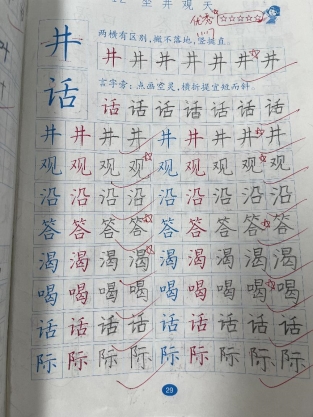 坐井观天
优秀
井
两横有区别,撇不落地,竖挺直。
井井井井井井井
话
言字旁:点画空灵,横折提宜短而斜。
话话话话话话话
井井井井井井井井
观观观观观观观观
沿沿沿沿沿沿沿沿
答答答答答答答答
渴渴渴渴渴渴渴渴
喝喝喝喝喝喝喝喝
话话话话话话话话
际际际际际际际际
29